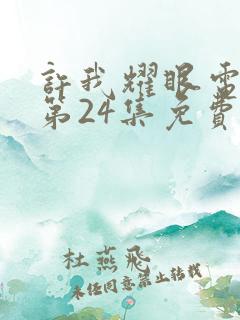 許我耀眼電
第24集免費
杜燕飛
未經同意禁止轉載